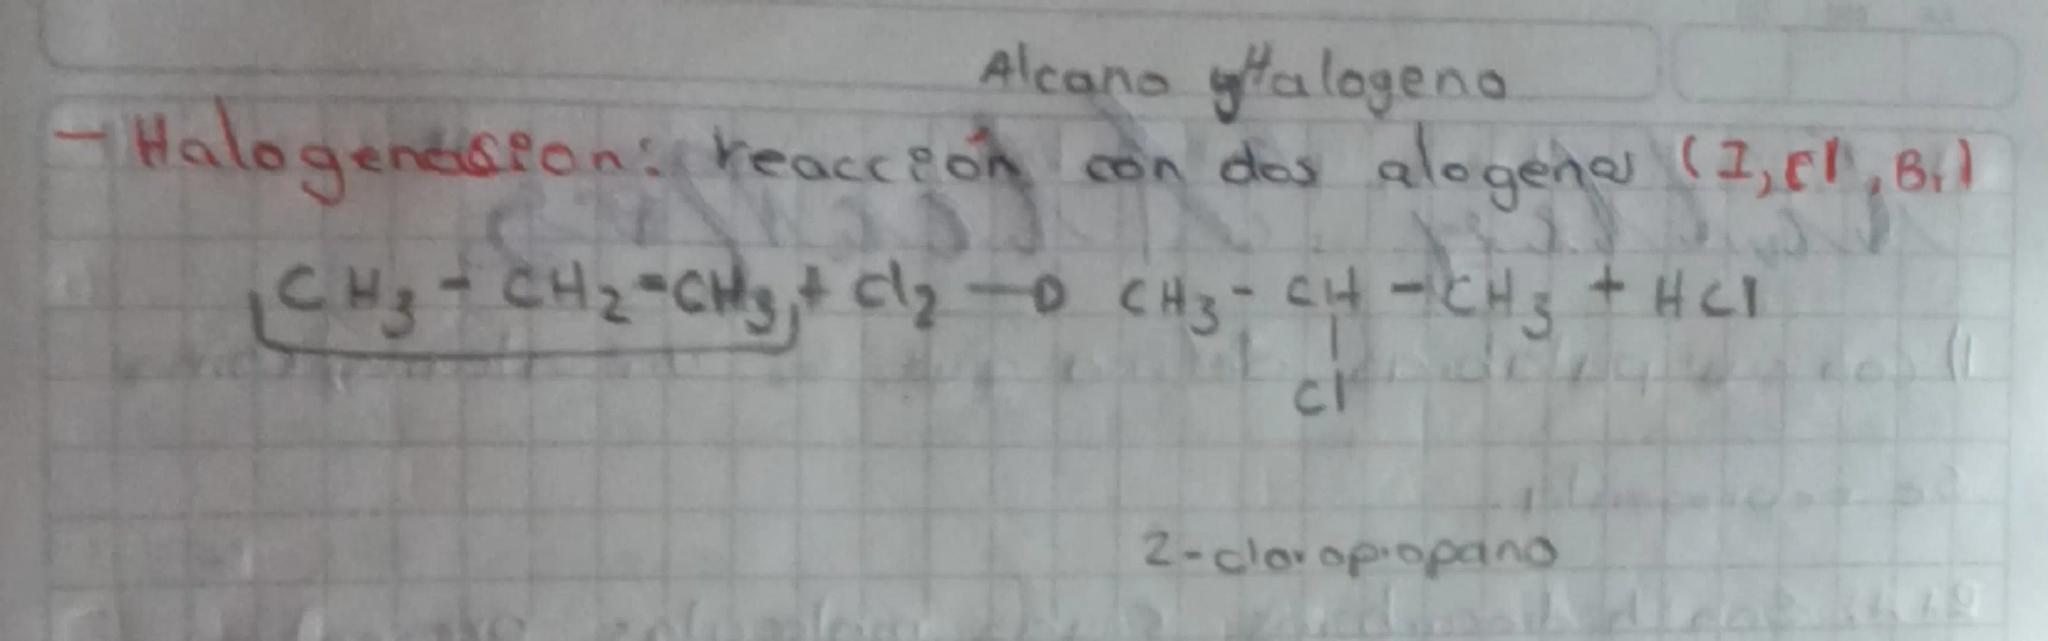 Alcano y Halogeno
- Halogenasion: reacción con dos alogenos (I, Cl, Br)
CH3 - CH2 - CH3 + Cl2 → CH3 - CH - CH3 + HCl
|
Cl
2-cloropropano